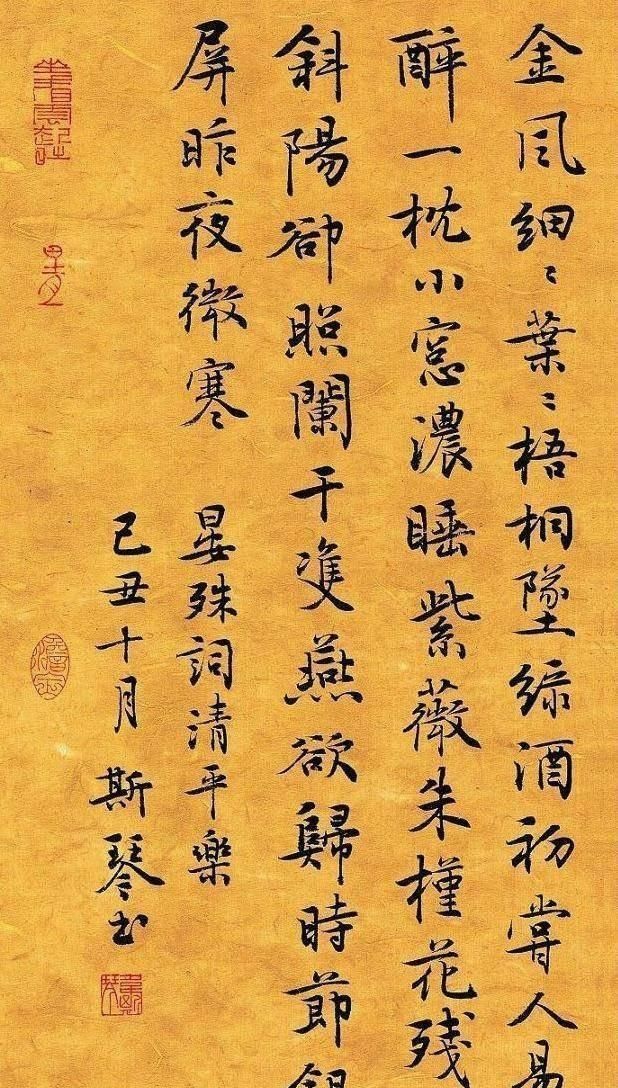 金風細〻葉〻梧桐墜緑酒初嘗人易
醉一枕小窓濃睡紫薇朱槿花残
斜陽卻照闌干雙燕欲歸時節銀
屏昨夜微寒
晏殊詞清平樂
己丑十月斯琴書